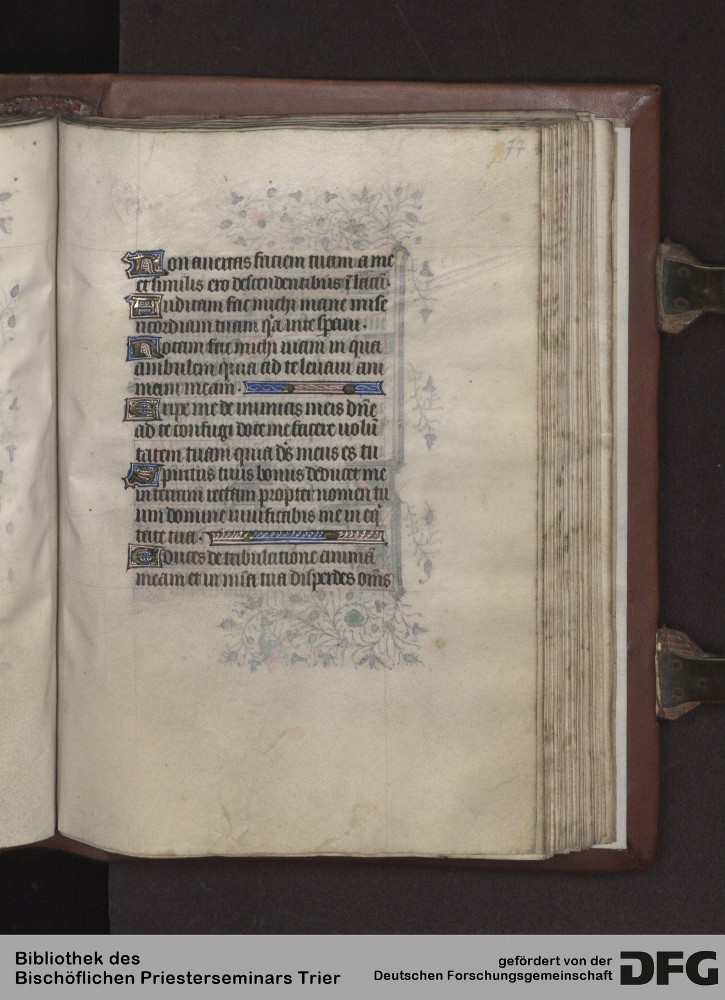 77
Non auertas faciem tuam a me
et similis ero descendentibus ī lacū.
Auditam fac michi mane mise
ricordiam tuam q̄a in te speraui.
Notam fac michi uiam in qua
ambulem quia ad te leuaui ani
mam meam.
Eripe me de inimicis meis dn̄e
ad te confugi doce me facere uolū
tatem tuam quia ds̄ meus es tu
Spiritus tuus bonus deducet me
in terram rectam propter nomen tu
um domine uiuificabis me in eq̄
tate tua.
Educes de tribulatione animā
meam et in mīa tua disperdes om̄s
Bibliothek des
Bischöflichen Priesterseminars Trier
gefördert von der
Deutschen Forschungsgemeinschaft
DFG